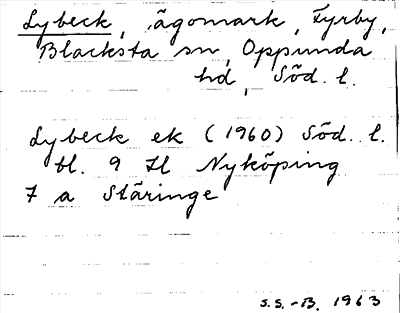 Lybeck, ägomark, Fyrby,
Blacksta sn, Oppunda
hd, Söd. l.
Lybeck ek (1960) Söd. l.
bl. 9 H Nyköping
7 a Stäringe
S.S.-B. 1963